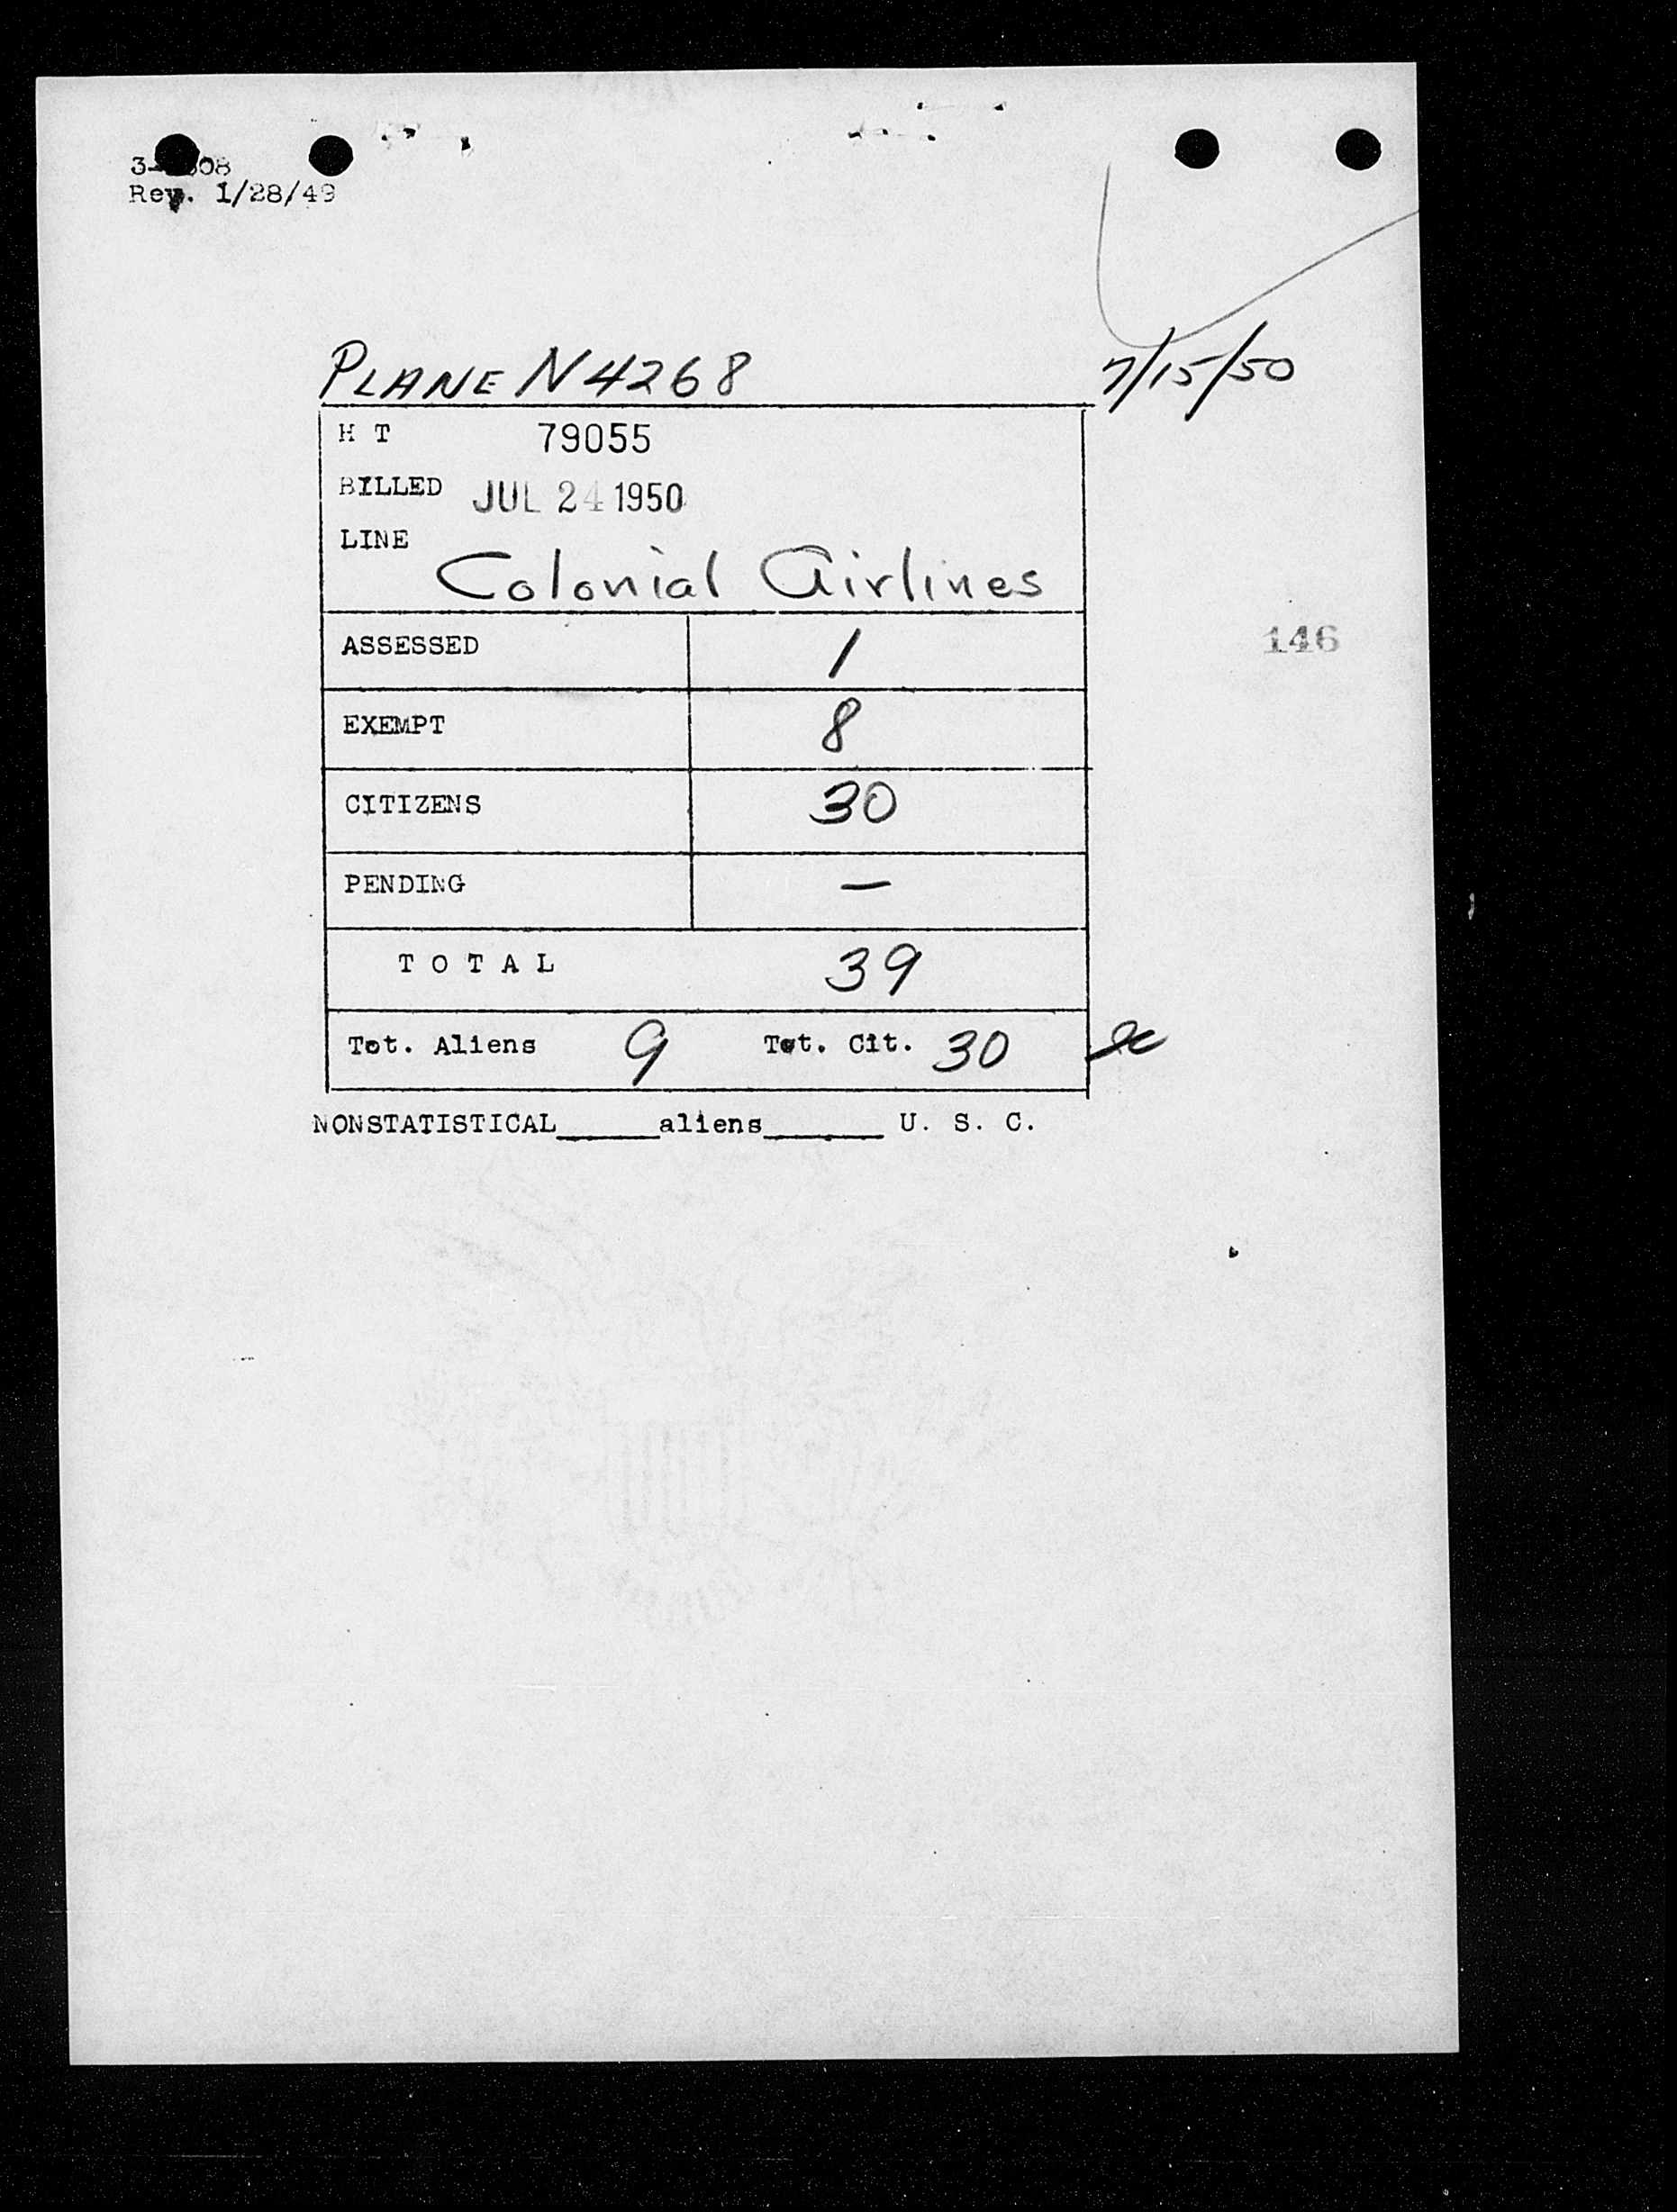 Rev. 1/28/49
PLANE N4268 7/15/50
H T 79055
BILLED JUL 24 1950
LINE
Colonial Airlines
ASSESSED 1
146
EXEMPT 8
CITIZENS 30
PENDING —
T O T A L 39
Tot. Aliens 9 Tot. Cit. 30
NONSTATISTICAL_____aliens______ U. S. C.